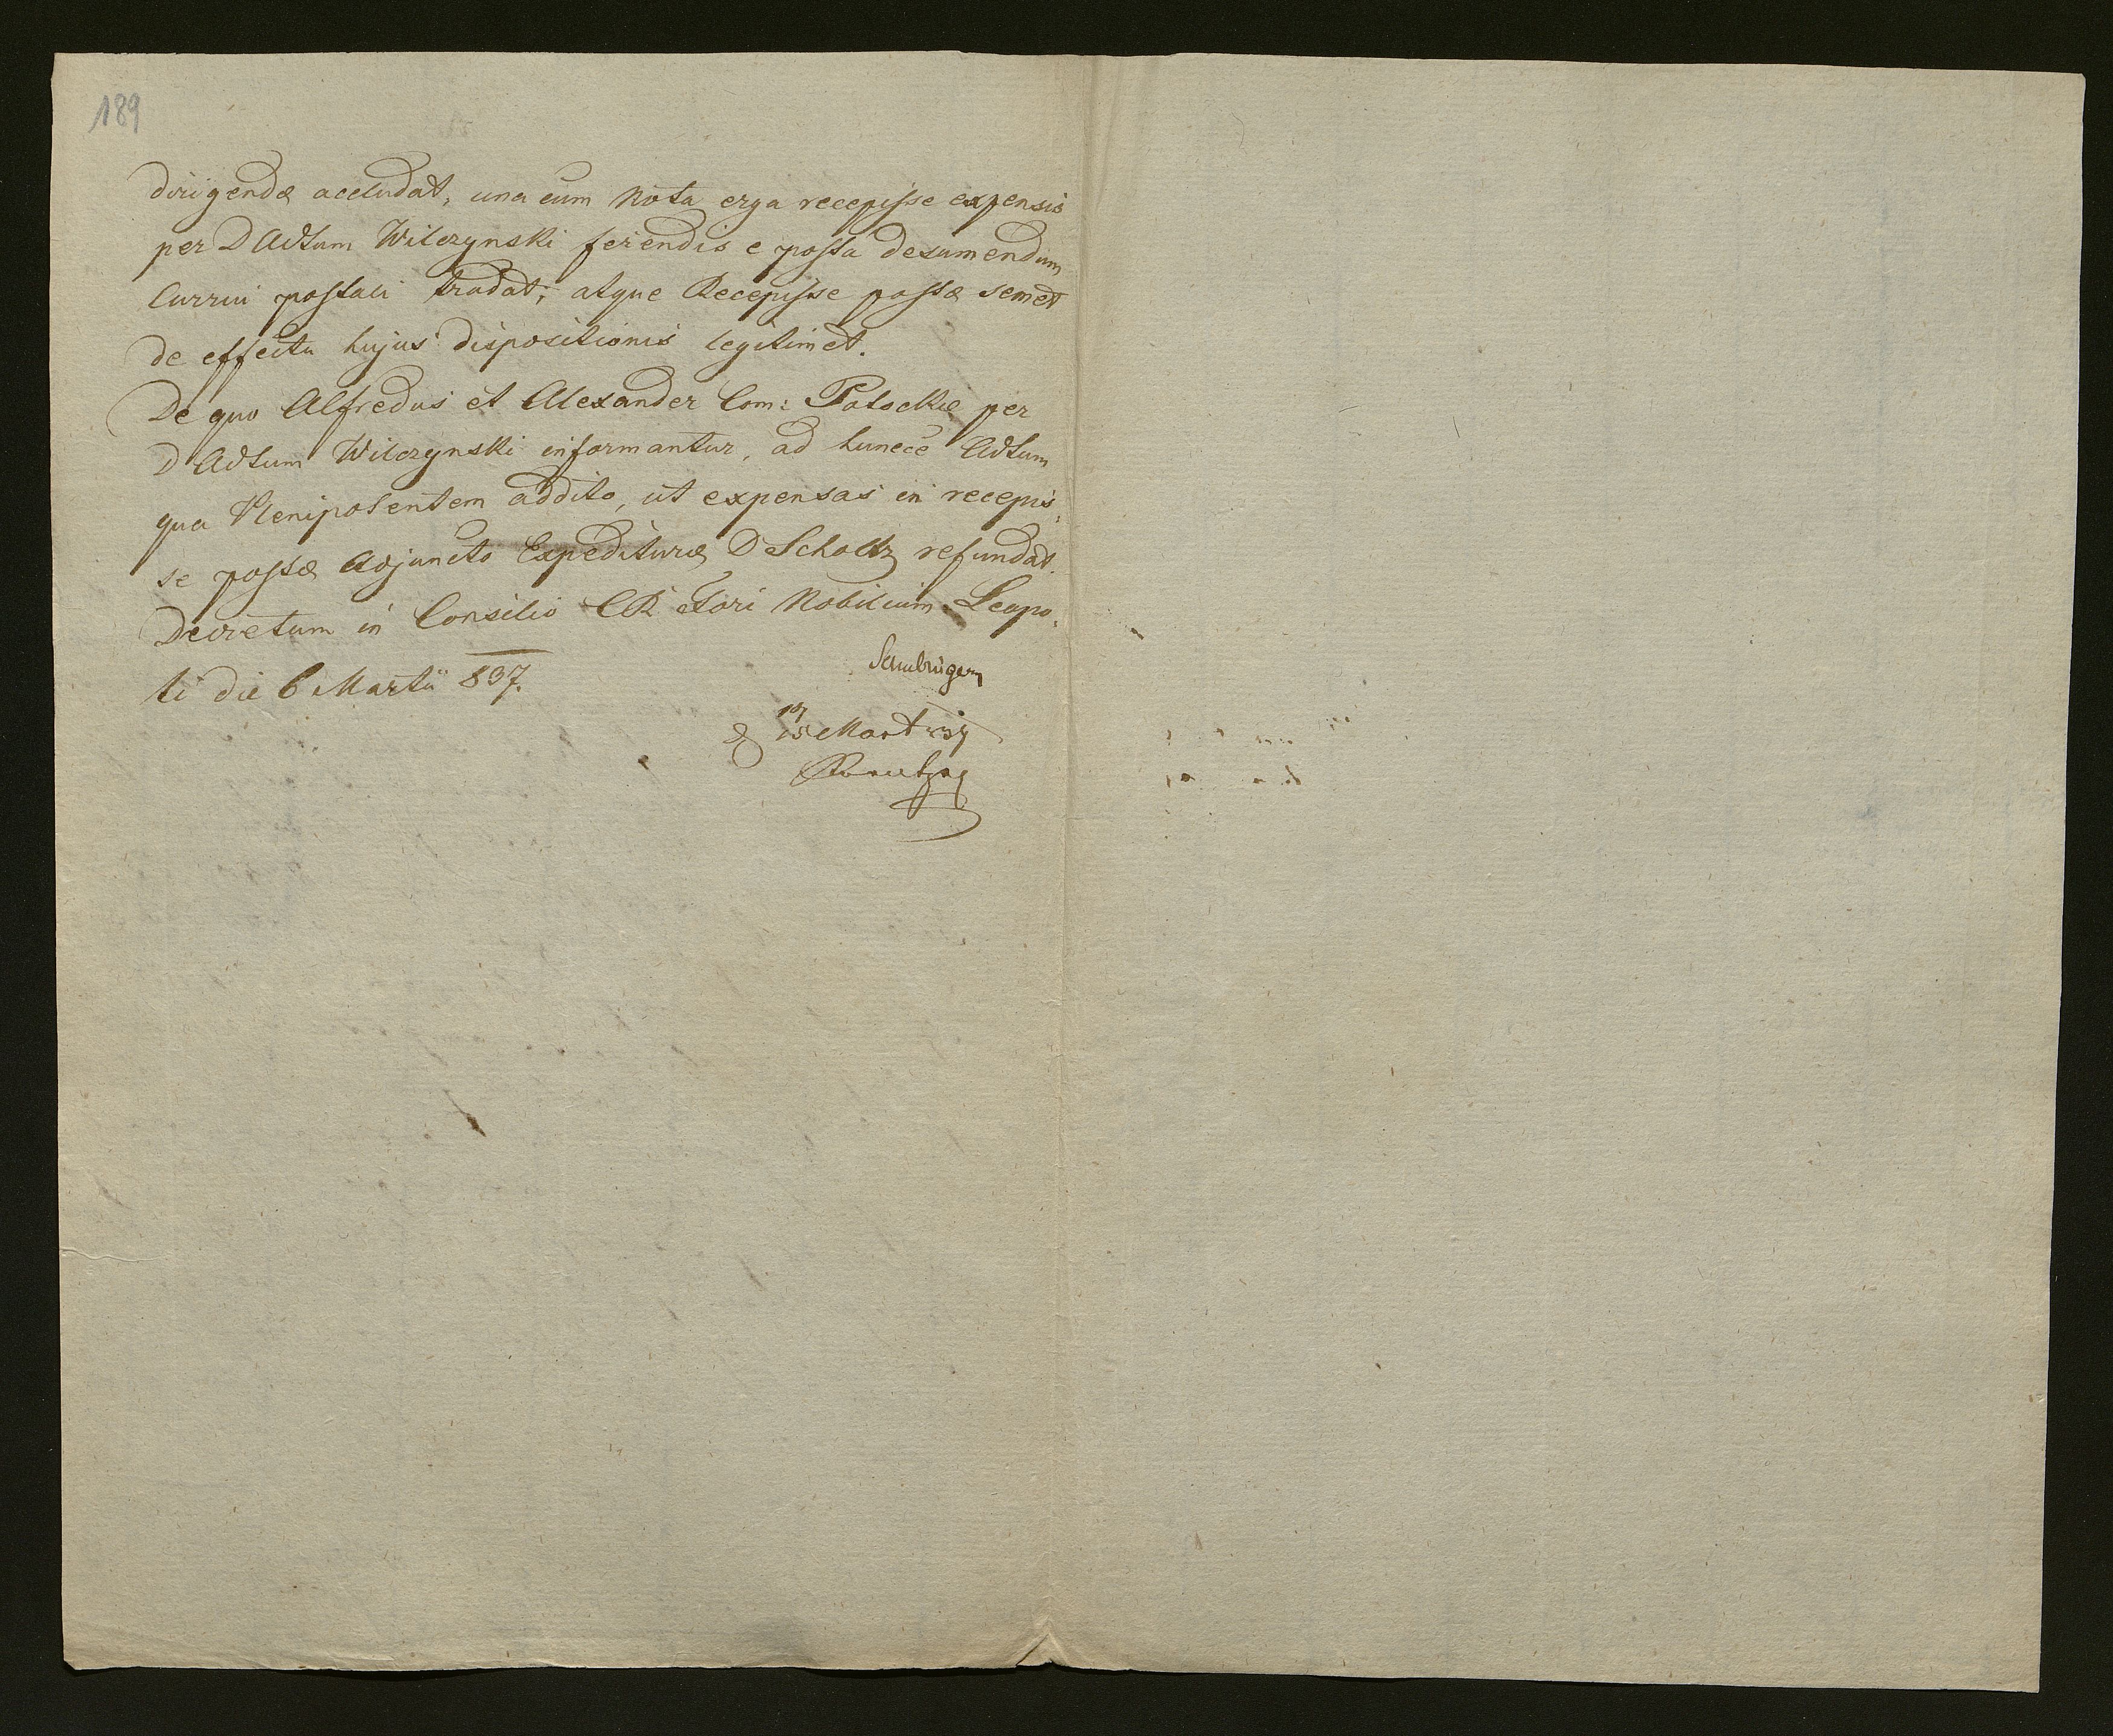 189
dirigendæ accludat, una cum Nota erga recepisse expensis
per D Adtum Wilczynski ferendis e posta desumendum
Currui postali tradat; atque Recepisse postæ semet
de effectu hujus dispositionis legitimet.
De quo Alfredus et Alexander Com: Potockie per
D Adtum Wilczynski informantur, ad huncce Adtum
qua Plenipotentem addito, ut expensas in recepis,
se postæ Adjuncto Expedituræ D Scholtz refundat.
Decretum in Consilio CR Fori Nobilium Leopo,
li die 6 Martii 837.
Mart